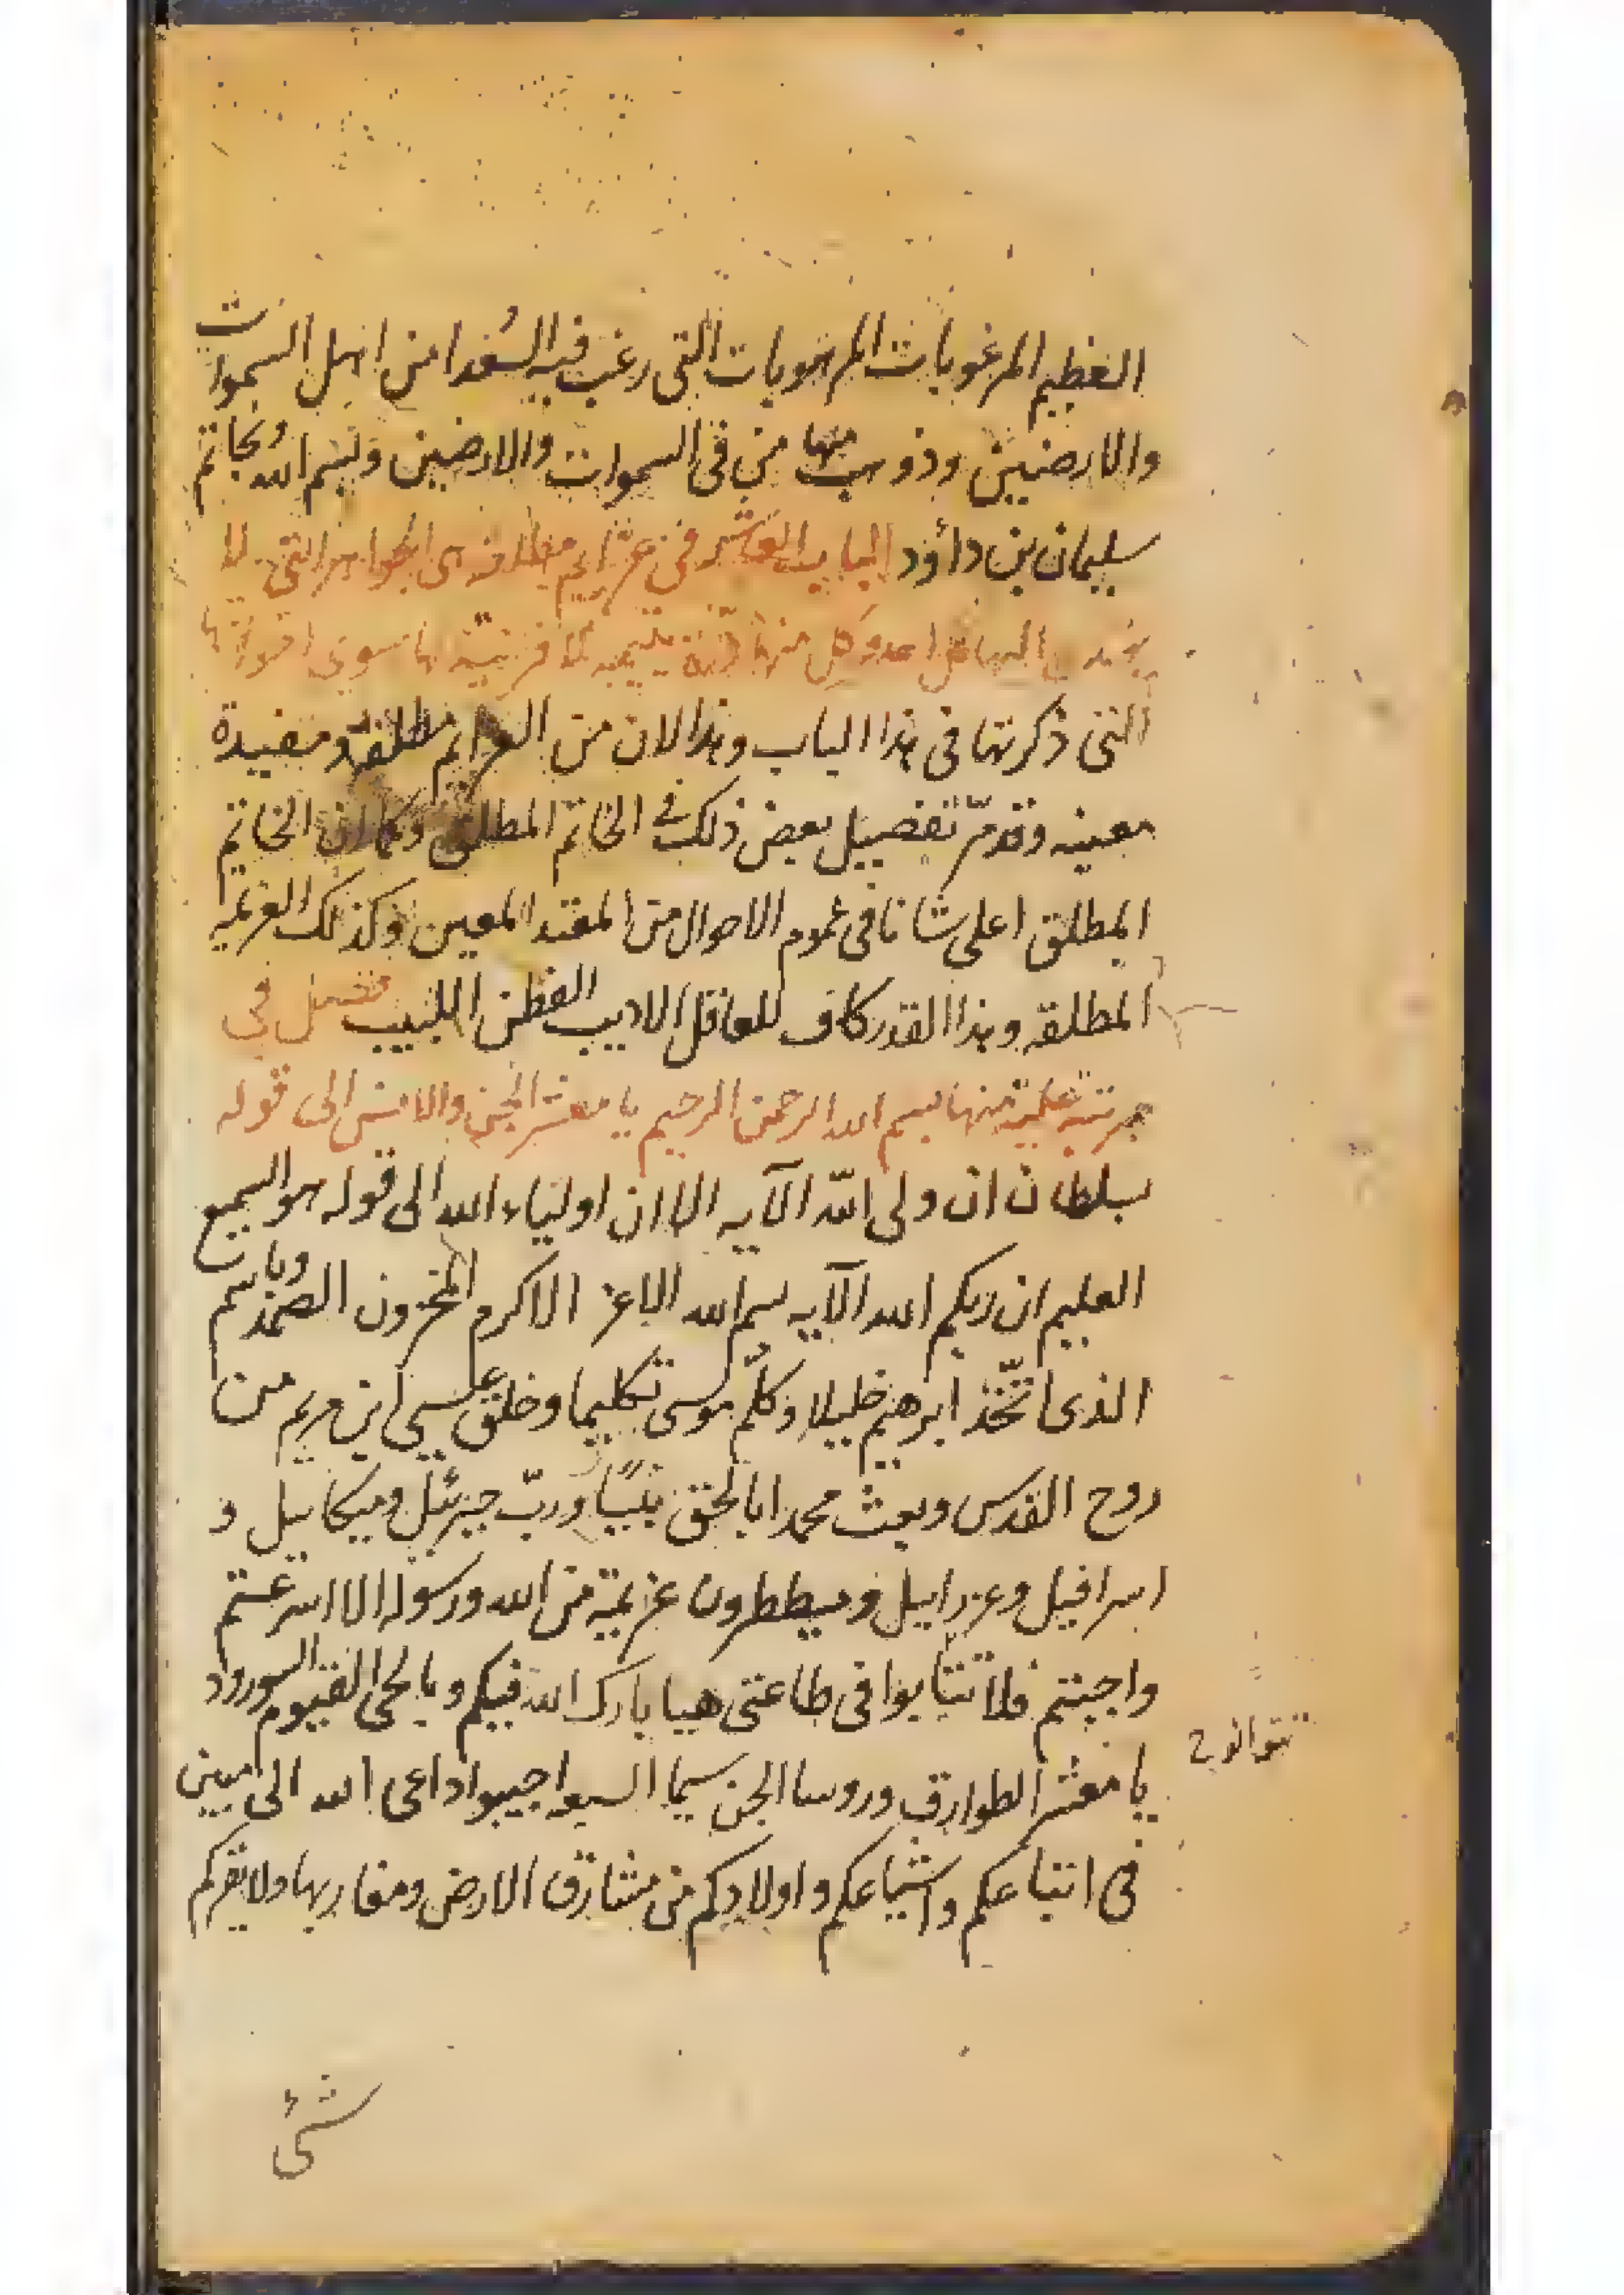 العظيم المرغوبات المرهوبات التى رغب فيه السعدا من اهل السموات
والارضيين وذو منها من فى السموات والارضين وبسم الله وبخاتم
سليمان بن داؤد الباب العاشر فى عزايم مطلقه الجواهر التى لا
احد وكل منها سوى
التى ذكرتها فى هذا الباب وهذا لان من العزايم مطلقة ومقيدة
معينه وتقدّم تفصيل بعض ذلك فى الخاتم المطلق وكما ان الخاتم
المطلق اعلى شانا فى عموم الاحوال من المقيد المعين وكذلك العزيمه
المطلقه وهذا القدر كاف للعاقل الاديب الفطن اللبيب فصل فى
منها بسم الله الرحمن الرحيم يا معشر الجن والانس الى قوله
بسلطان ان ولى الله الآيه الا ان اولياء الله الى قوله هو السميع
العليم ان ربكم الله الآيه بسم الله الاعز الاكرم المخزون الصمد وباسم
الذى اتّخذ ابرهيم خليلا وكلّم موسى تكليما وخلق عيسى ابن مريم من
روح القدس وبعث محمدا بالحق نبيّا وربّ جبرئيل وميكاييل و
اسرافيل وعزراييل وميططرون عزيمة من الله ورسوله الا اسرعتم
واجبتم فلا فى طاعتى هيا بارك الله فيكم وبالحى القيوم
يا معشر الطوارق وروسا الجن سيما اجيبوا داعى الله الى
فى اتباعكم واشياعكم واولادكم من مشارق الارض ومغاربها ولا يغركم
شئ